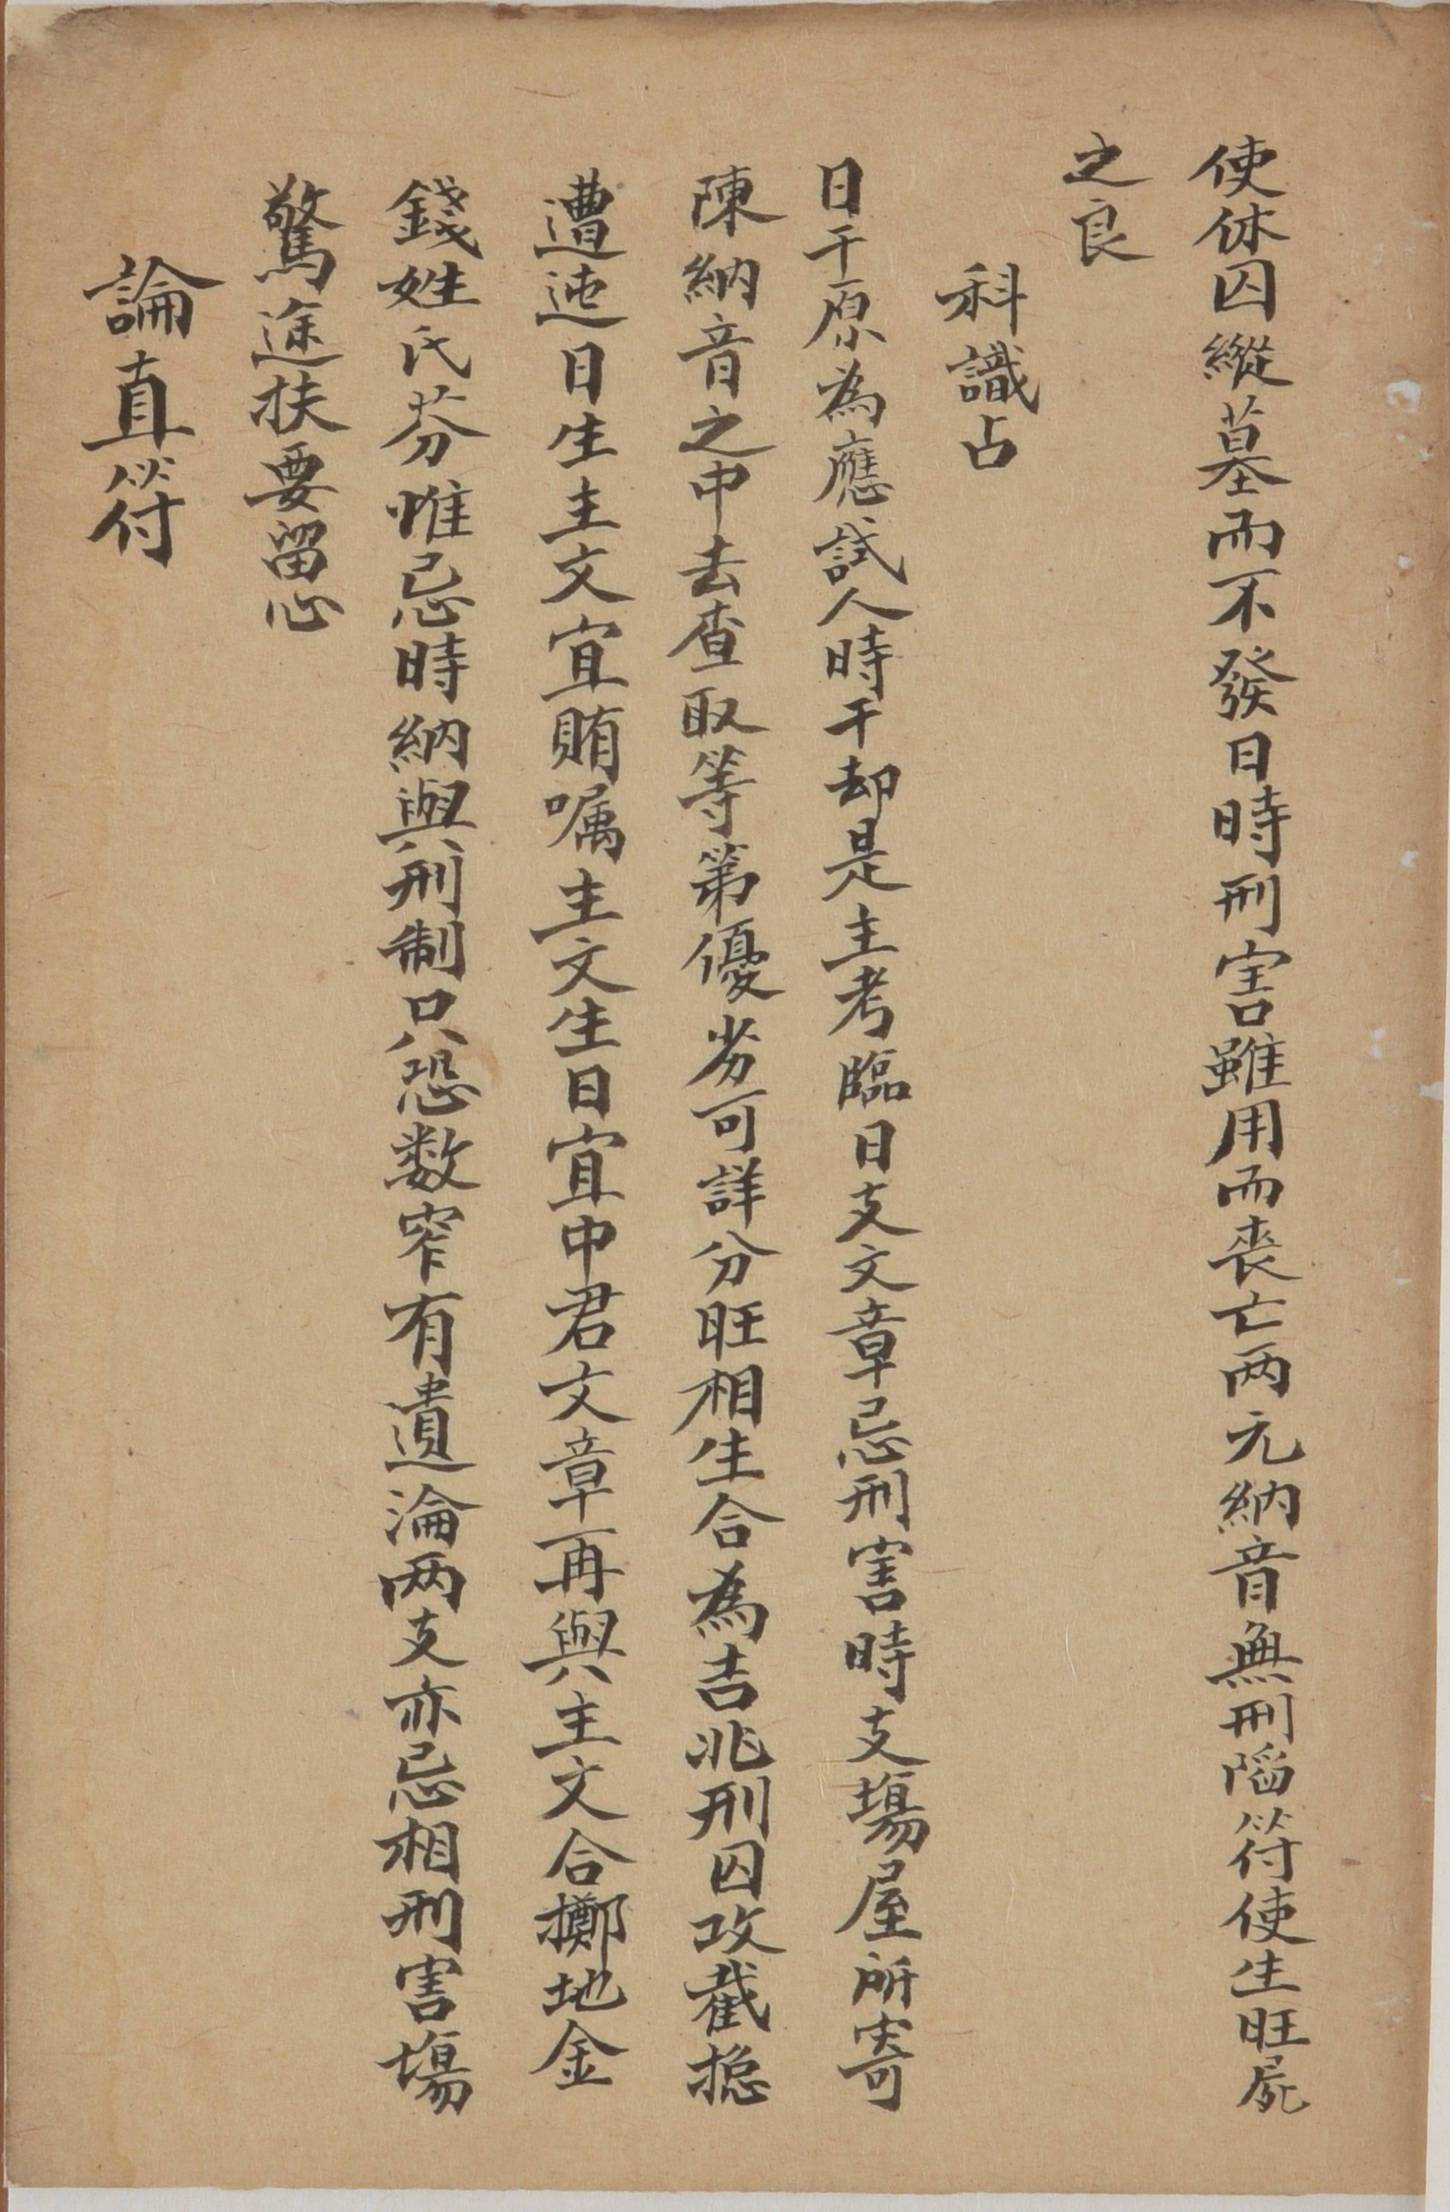 使休囚縱墓而不發日時刑害雖用而喪亡两元納音無刑陷符使生旺屍
之良
科識占
日干原為應試人時干却是主考臨日支文章忌刑害時支塲屋所寄
陳納音之中去查取等第優劣可詳分旺相生合為吉兆刑囚攻截捴
遭迍日生主文宜賄嘱主文生日宜中君文章再與主文合擲地金
錢姓氏芬惟忌時納與刑制只恐数窄有遺淪两支亦忌相刑害塲
驚途扶要留心
論直符